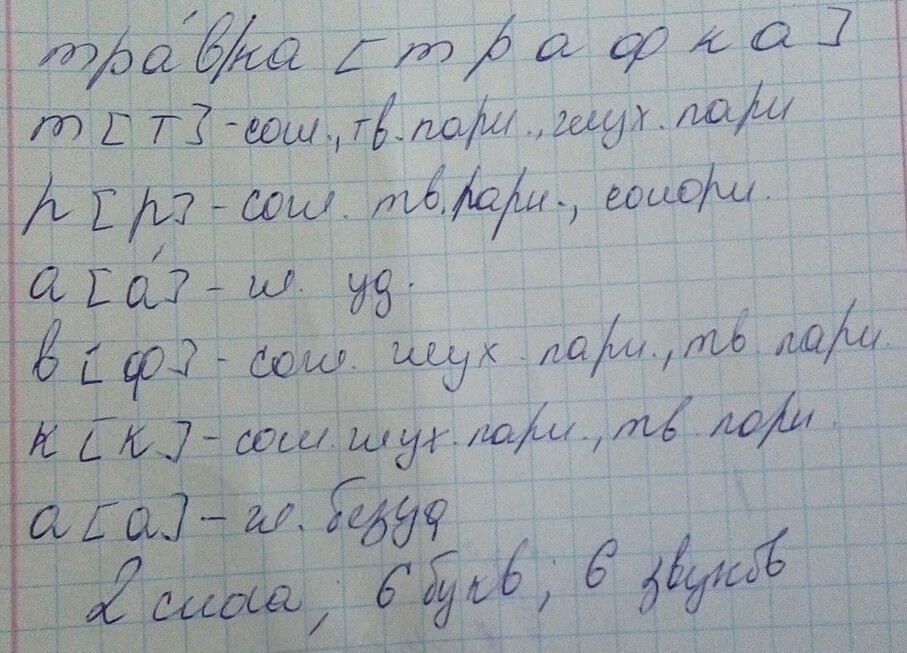 тра́в/ка [т р а ф к а]
т [т] - согл., тв. парн., глух. парн
р [р] - согл. тв. парн., сонорн.
а [а́] - гл. уд.
в [ф] - согл. глух. парн., тв. парн.
к [к] - согл. глух. парн., тв. парн.
а [а] - гл. безуд
2 слога; 6 букв; 6 звуков